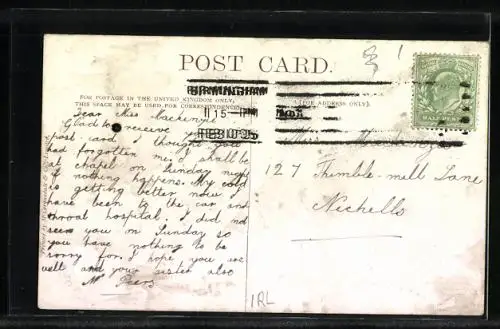 POST CARD.
FOR POSTAGE IN THE UNITED KINGDOM ONLY,
THIS SPACE MAY BE USED FOR CORRESPONDENCE
(FOR ADDRESS ONLY.)
BIRMINGHAM
11 15 PM
FEB 10 05
HALFPENNY
Dear Miss Mackenzie
Glad to receive your
post card I thought you
had forgotten me I shall be
at chapel on Sunday night
if nothing happens. My cold
is getting better now I
have been to the ear and
throat hospital. I did not
see you on Sunday so
you have nothing to be
sorry for. I hope you are
well and your sister also
M Peers
Miss Mackenzie
127 Thimble-mill Lane
Nechells
IRL